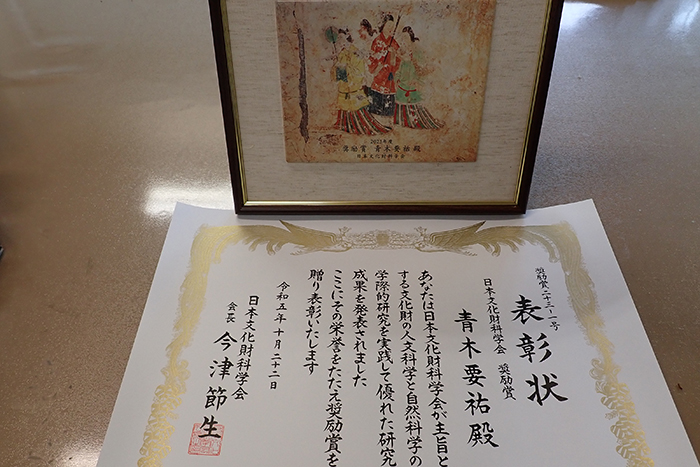 2023年度
奨励賞 青木要祐殿
日本文化財科学会
奨励賞二十三-一号
表彰状
日本文化財科学会 奨励賞
青木要祐殿
あなたは日本文化財科学会が主旨と
する文化財の人文科学と自然科学の
学際的研究を実践して優れた研究
成果を発表されました
ここにその栄誉をたたえ奨励賞を
贈り表彰いたします
令和五年十月二十二日
日本文化財科学会
会長 今津節生